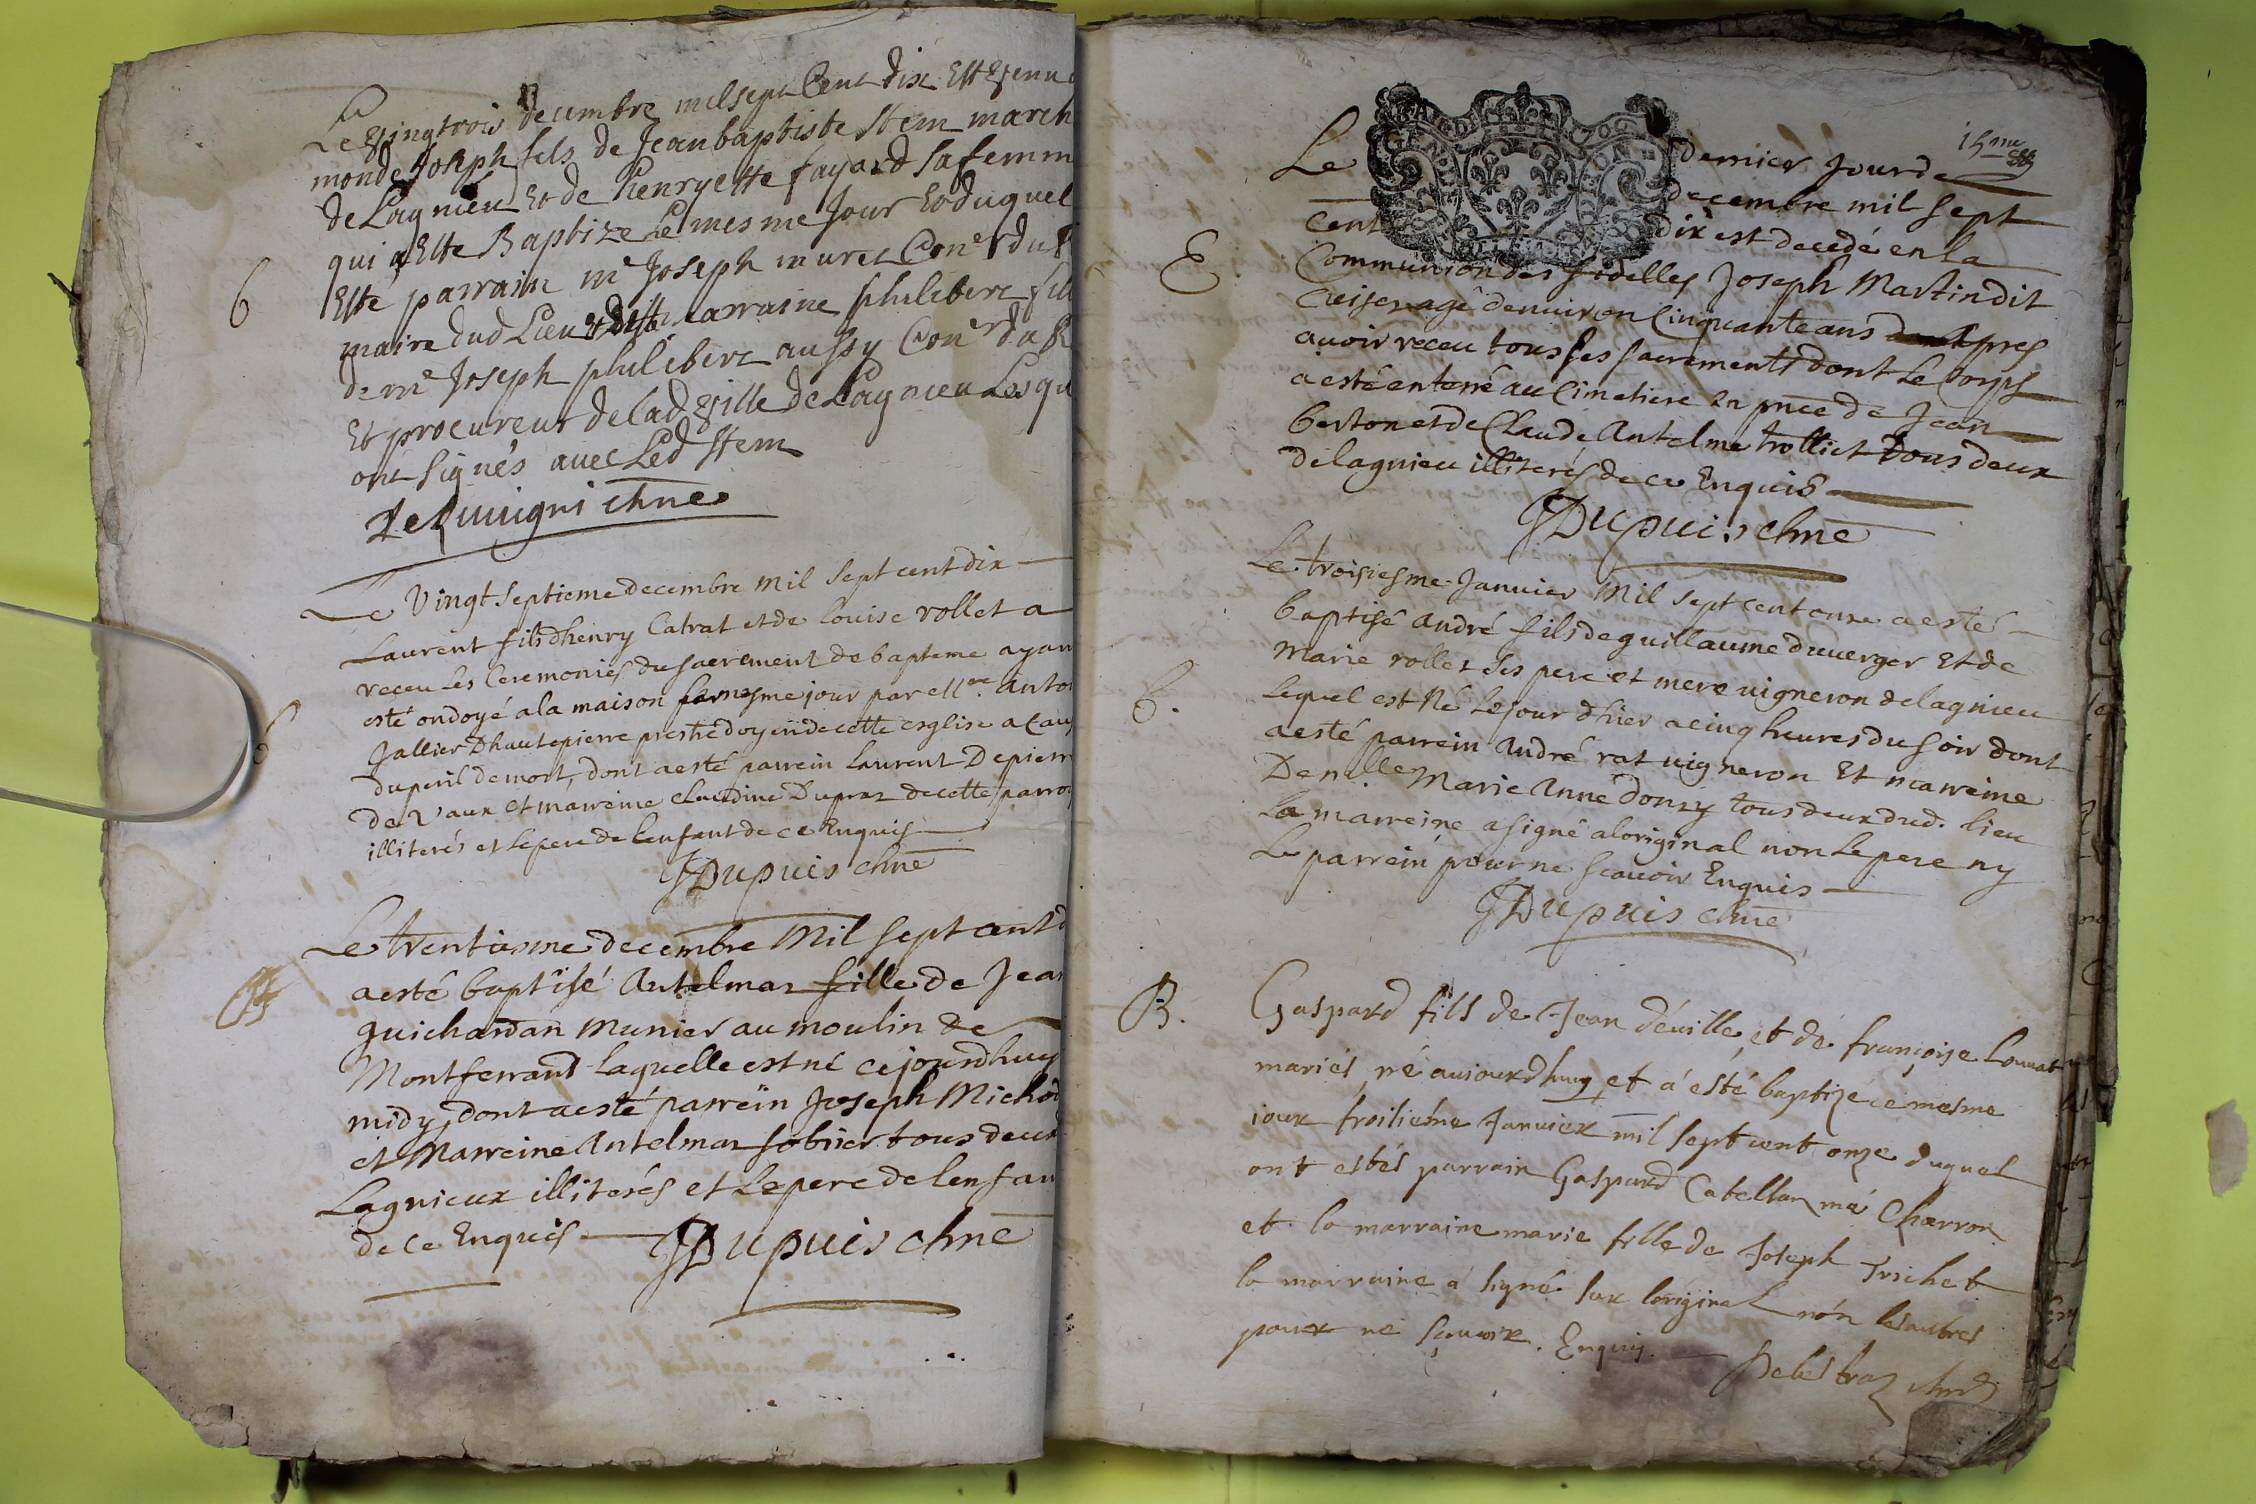 Le vingtrois decembre mil sept Cent dix Est venu
monde Joseph fils de Jean baptiste Stem march
de Lagnieu Et de henryette fayard sa femm
qui a Este Baptize Le mesme Jour Et duquel
6
Esté parrain mr Joseph muret Coner du
maire dud Lieu et marraine philibert fill
de me Joseph philibert aussy Coner du R
Et procureur de lad ville de Lagnieu Lesqu
ont signés avec Led Stem
chne
Le Vingt septieme decembre mil sept cent dix
Laurent fils dhenry Catrat et de Louise rollet a
receu les Ceremonies du sacrement de bapteme ayan
esté ondoyé a la maison mesme jour par Mre anto
6
Jallier Dhautepierre prestre doyen de cette esglise a Cau
du peril de mort, dont a esté parrein Laurent Depierr
de Vaux et marreine Claudine Dupraz de cette parro
illiterés et le pere de lenfant de ce Enquis
JDupuis chne
Le trentiesme decembre Mil sept cent d
a esté baptisé Antelmaz fille de Jean
guichardan Munier au moulin de
Montferrand laquelle est né ce jourdhuy
midy, dont a esté parrein Joseph Michod
et Marreine Antelmaz sobrier tous deux
Lagnieux illiterés et Le pere de lenfan
de ce Enquis
JDupuis chne
15me
GEN. DE DIJON
Le dernier Jour de
decembre mil sept
cent dix est decedé en la
E
Communion des fidelles Joseph Martin dit
agé denviron Cinquante ans apres
avoir receu tous ses sacrements dont Le Corps
a esté enterré au Cimetiere en pnce de Jean
berton et de Claude Antelme trolliet tous deux
de lagnieu illiterés de ce Enquis
JDupuis chne
Le troisiesme Janvier Mil sept cent onze a esté
baptisé andré fils de guillaume duverger Et de
Marie rollet ses pere et mere vigneron de lagnieu
6.
Lequel est Né Le jour dhier a cinq heures du soir dont
a esté parrein André rat vigneron Et marreine
Demlle Marie Anne donzy tous deux dud. lieu
La marreine a signé a loriginal non Le pere ny
Le parrein pour ne scavoir Enquis
JDupuis chne
B.
Gaspard fils de Jean déville et de françoise Louvat
mariés né aujourdhuy et a esté baptizé ce mesme
jour troisiesme Janvier mil sept cent onze duquel
ont estés parrain Gaspard Catellan me Charron
et la marraine marie fille de Joseph trichet
la marraine a signé sur loriginal non les autres
pour ne sçavoir. Enquis.
Delestraz chne